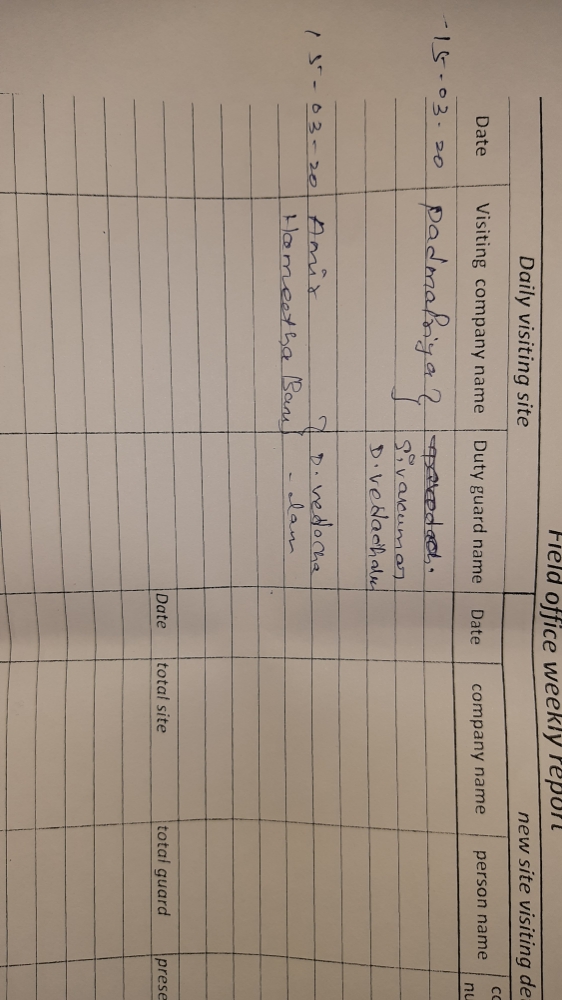 Field office weekly report
Daily visiting site new site visiting de
Date Visiting company name Duty guard name Date company name person name co
nu
-15.03.20 Padmapriya
Sivakumar
D.vedachalu
15-03-20 Amir D.vedacha
Hameetha Banu - lam
Date total site total guard prese